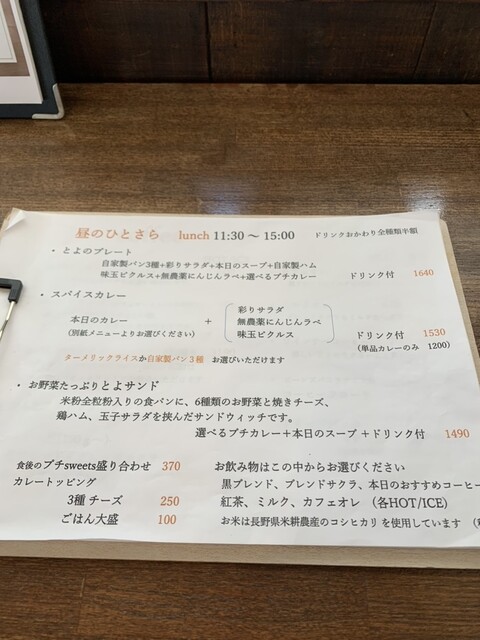 昼のひとさら lunch 11:30 〜 15:00 ドリンクおかわり全種類半額
・とよのプレート
自家製パン3種+彩りサラダ+本日のスープ+自家製ハム
味玉ピクルス+無農薬にんじんラペ+選べるプチカレー ドリンク付 1640
・スパイスカレー
本日のカレー
(別紙メニューよりお選びください)
+
彩りサラダ
無農薬にんじんラペ
味玉ピクルス
ドリンク付 1530
(単品カレーのみ 1200)
ターメリックライスか自家製パン3種 お選びいただけます
・お野菜たっぷりとよサンド
米粉全粒粉入りの食パンに、6種類のお野菜と焼きチーズ、
鶏ハム、玉子サラダを挟んだサンドウィッチです。
選べるプチカレー+本日のスープ+ドリンク付 1490
食後のプチsweets盛り合わせ 370
カレートッピング
3種 チーズ 250
ごはん大盛 100
お飲み物はこの中からお選びください
黒ブレンド、ブレンドサクラ、本日のおすすめコーヒー
紅茶、ミルク、カフェオレ (各HOT/ICE)
お米は長野県米耕農産のコシヒカリを使用しています